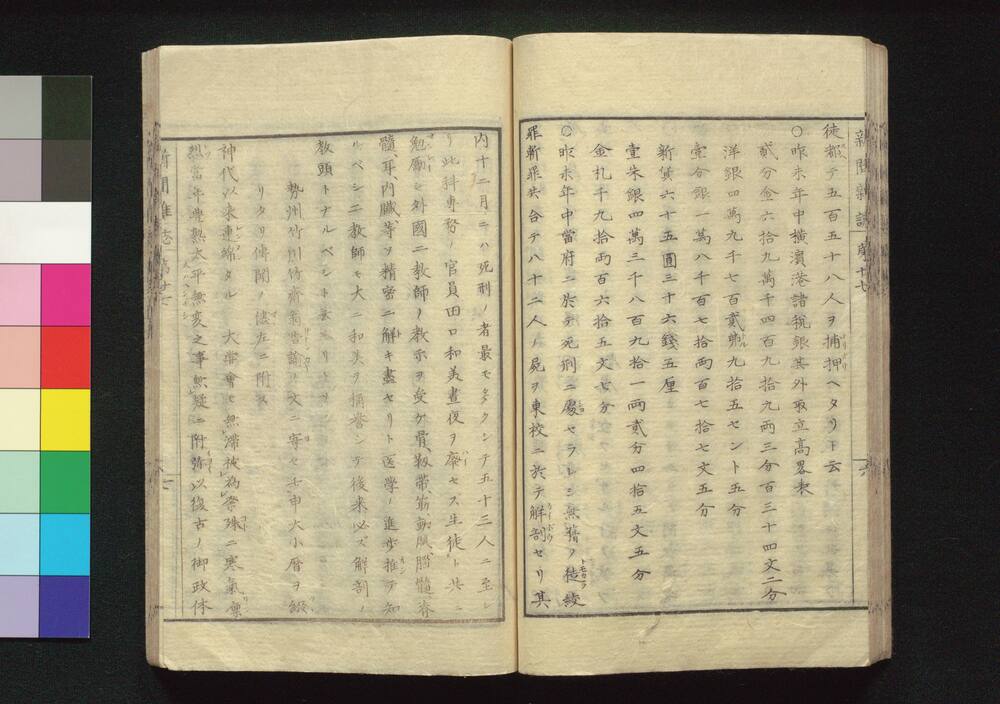 徒都テ五百五十八人ヲ捕押ヘタリト云
〇昨未年中横濱港諸税銀其外取立高畧表
貳分金六拾九萬千四百九拾九両三分百三十四文二分
洋銀四萬九千七百貳弗九拾五セント五分
壹分銀一萬八千百七拾両百七拾七文五分
新貨六十五圓三十六錢五厘
壹朱銀四萬三千八百九拾一両貳分四拾五文五分
金札千九拾両百六拾五文七分
〇昨未年中當府ニ於テ死刑ニ處セラレシ無籍ノ徒絞
罪斬罪共合テ八十二人ノ屍ヲ東校ニ於テ解剖セリ其
内十二月ニハ死刑ノ者最モ多クシテ五十三人ニ至レ
リ此科専務ノ官員田口和美晝夜ヲ廃セス生徒ト共ニ
勉励シ外國二教師ノ教示ヲ受ケ骨、靱帯、筋、動脈、腦髓、脊
髓、耳、内臓等ヲ精密ニ解キ盡セリト医学ノ進歩推テ知
ルベシ二教師モ大ニ和美ヲ稱誉シテ後来必ズ解剖ノ
教頭トナルベシト
勢州竹川竹斎翁告諭ノ文ニ寄セ壬申大小暦ヲ綴
リタリ傳聞ノ儘左ニ附ス
神代以来連綿タル 大嘗會モ無滞被為祭殊ニ寒氣凛
烈當年豊熟太平無変之事無疑ニ附弥以復古ノ御政体